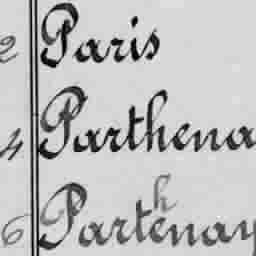 2 Paris
4 Parthena
6 Parthenay